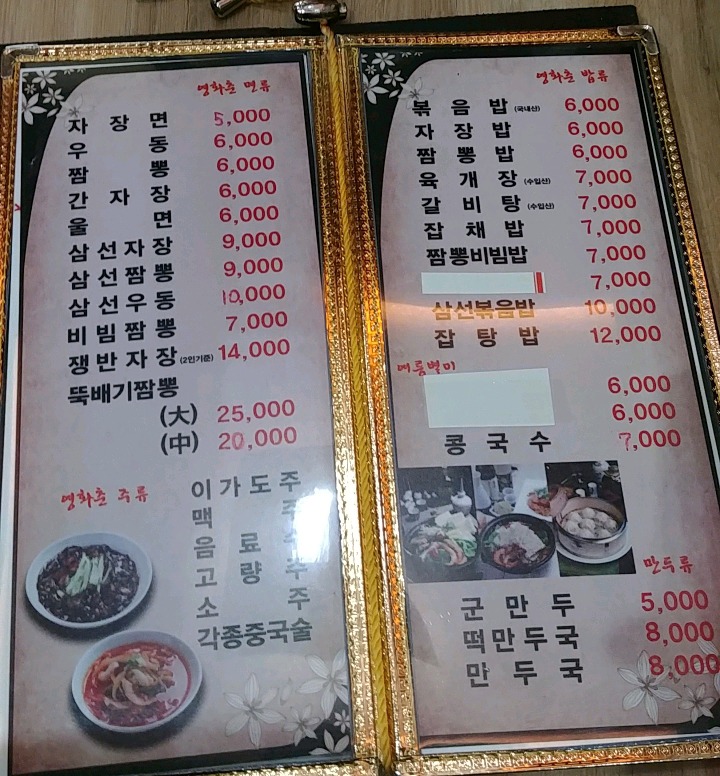 영화춘 면류
자장면 5,000
우동 6,000
짬뽕 6,000
간자장 6,000
울면 6,000
삼선자장 9,000
삼선짬뽕 9,000
삼선우동 10,000
비빔짬뽕 7,000
쟁반자장 (2인기준) 14,000
뚝배기짬뽕
(大) 25,000
(中) 20,000
영화춘 주류
이가도주
맥주
음료수
고량주
소주
각종중국술
영화춘 밥류
볶음밥 (국내산) 6,000
자장밥 6,000
짬뽕밥 6,000
육개장 (수입산) 7,000
갈비탕 (수입산) 7,000
잡채밥 7,000
짬뽕비빔밥 7,000
7,000
삼선볶음밥 10,000
잡탕밥 12,000
여름별미
6,000
6,000
콩국수 7,000
만두류
군만두 5,000
떡만두국 8,000
만두국 8,000